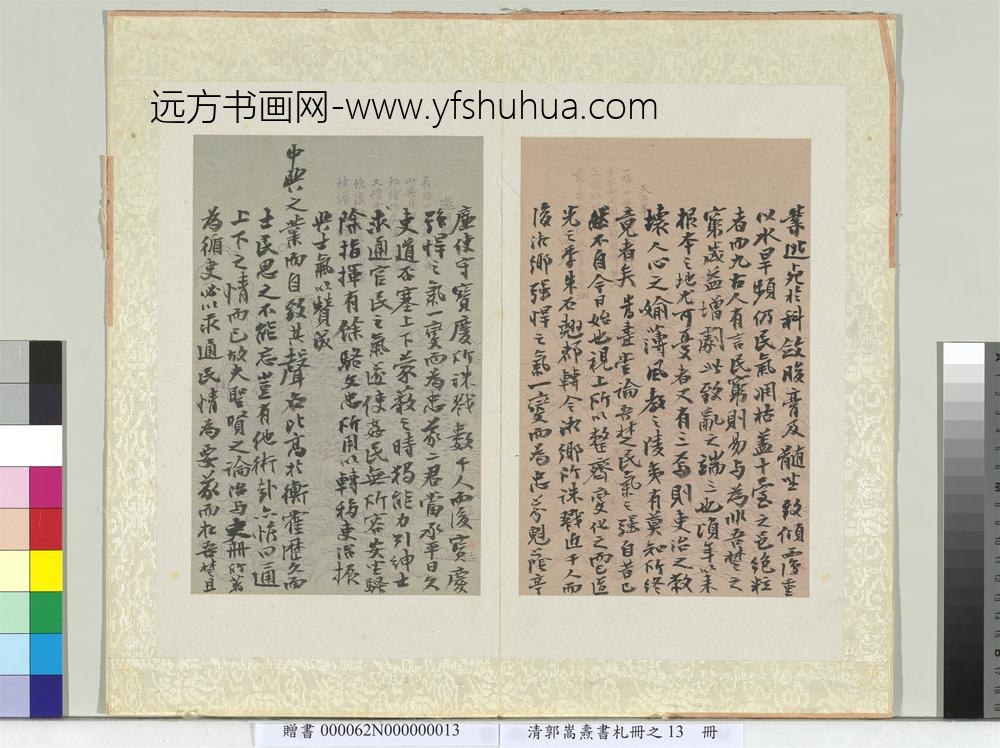 远方书画网-www.yfshuhua.com
於科斂朘膏及髓坐致傾覆重
以水旱頻仍民氣凋枯蓋十室之邑絕粒
者而九古人有言民窮則易與為非吾楚之
窮歲益增劇此致亂之端三也頃年以來
根本之地尤可憂者又有三焉則吏治之敝
壞人心之媮薄風教之陵夷有莫知所終
竟者矣嵩燾嘗論吾楚民氣之強自昔已
然不自今日始也視上所以整齊變化之而已道
光之季朱石翹郡轉令湘鄉所誅戮近千人而
後湘鄉強悍之氣一變而為忠義魁蔭亭
廉使守寶慶所誅戮數千人而後寶慶
強悍之氣一變而為忠義二君當承平日久
吏道否塞上下蒙蔽之時獨能力引紳士
求通官民之氣遂使姦民無所容
除指揮有餘駱文忠所用以轉移吏治振
興士氣以贊成
中興之業而自致其聲名比高於衡霍歷久而
士民思之不能忘豈有他術哉亦惟曰通
上下之情而已故夫聖賢之論治與史冊所著
為循吏必以求通民情為要義而在吾楚且
贈書 000062N000000013
清郭嵩燾書札冊之 13 冊